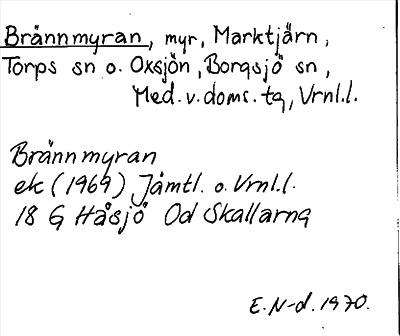 Brännmyran, myr, Marktjärn,
Torps sn o. Oxsjön, Borgsjö sn,
Med. v. doms. tg, Vrnl.l.
Brännmyran
ek (1969) Jämtl. o. Vrnl.l.
18 G Håsjö Od Skallarna
E. N-d. 1970.